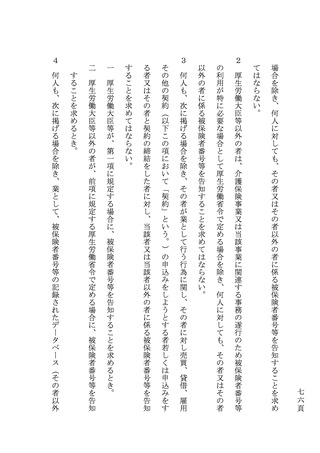 場合を除き、何人に対しても、その者又はその者以外の者に係る被保険者番号等を告知することを求め
てはならない。
２　厚生労働大臣等以外の者は、介護保険事業又は当該事業に関連する事務の遂行のため被保険者番号等
の利用が特に必要な場合として厚生労働省令で定める場合を除き、何人に対しても、その者又はその者
以外の者に係る被保険者番号等を告知することを求めてはならない。
３　何人も、次に掲げる場合を除き、その者が業として行う行為に関し、その者に対し売買、貸借、雇用
その他の契約（以下この項において「契約」という。）の申込みをしようとする者若しくは申込みをす
る者又はその者と契約の締結をした者に対し、当該者又は当該者以外の者に係る被保険者番号等を告知
することを求めてはならない。
一　厚生労働大臣等が、第一項に規定する場合に、被保険者番号等を告知することを求めるとき。
二　厚生労働大臣等以外の者が、前項に規定する厚生労働省令で定める場合に、被保険者番号等を告知
することを求めるとき。
４　何人も、次に掲げる場合を除き、業として、被保険者番号等の記録されたデータベース（その者以外
七六頁